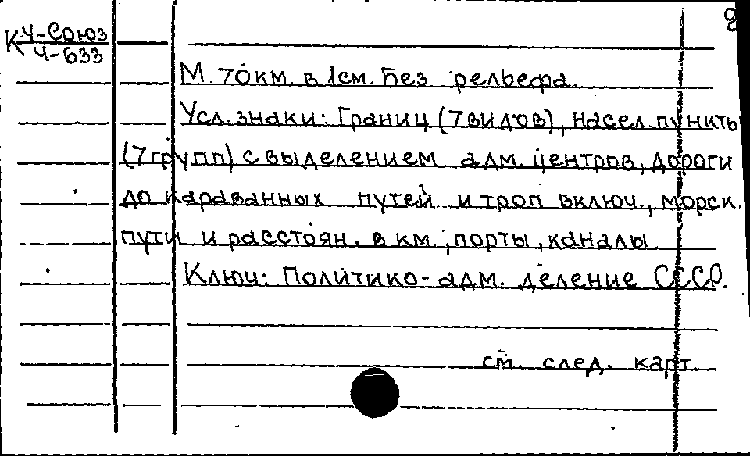 2
К Ч-Союз
Ч-633
М. 70км. в 1см. Без рельефа.
Усл. знаки: Границ (7 видов), насел. пункты
(7 групп) с выделением адм. центров, дороги
до караванных путей и троп включ., морск.
пути и расстоян. в км., порты, каналы
Ключ: Политико-адм. деление СССР.
см. след. карт.